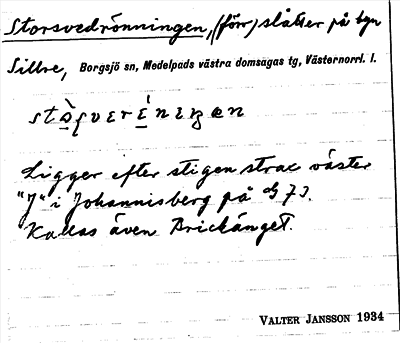 Storsvedrönningen, (förr) slåtter på byn
Sillre, Borgsjö sn, Medelpads västra domsagas tg, Västernorrl. l.
Ligger efter stigen strax väster
"J" i Johannisberg på 73.
Kallas även Brickänget.
VALTER JANSSON 1934